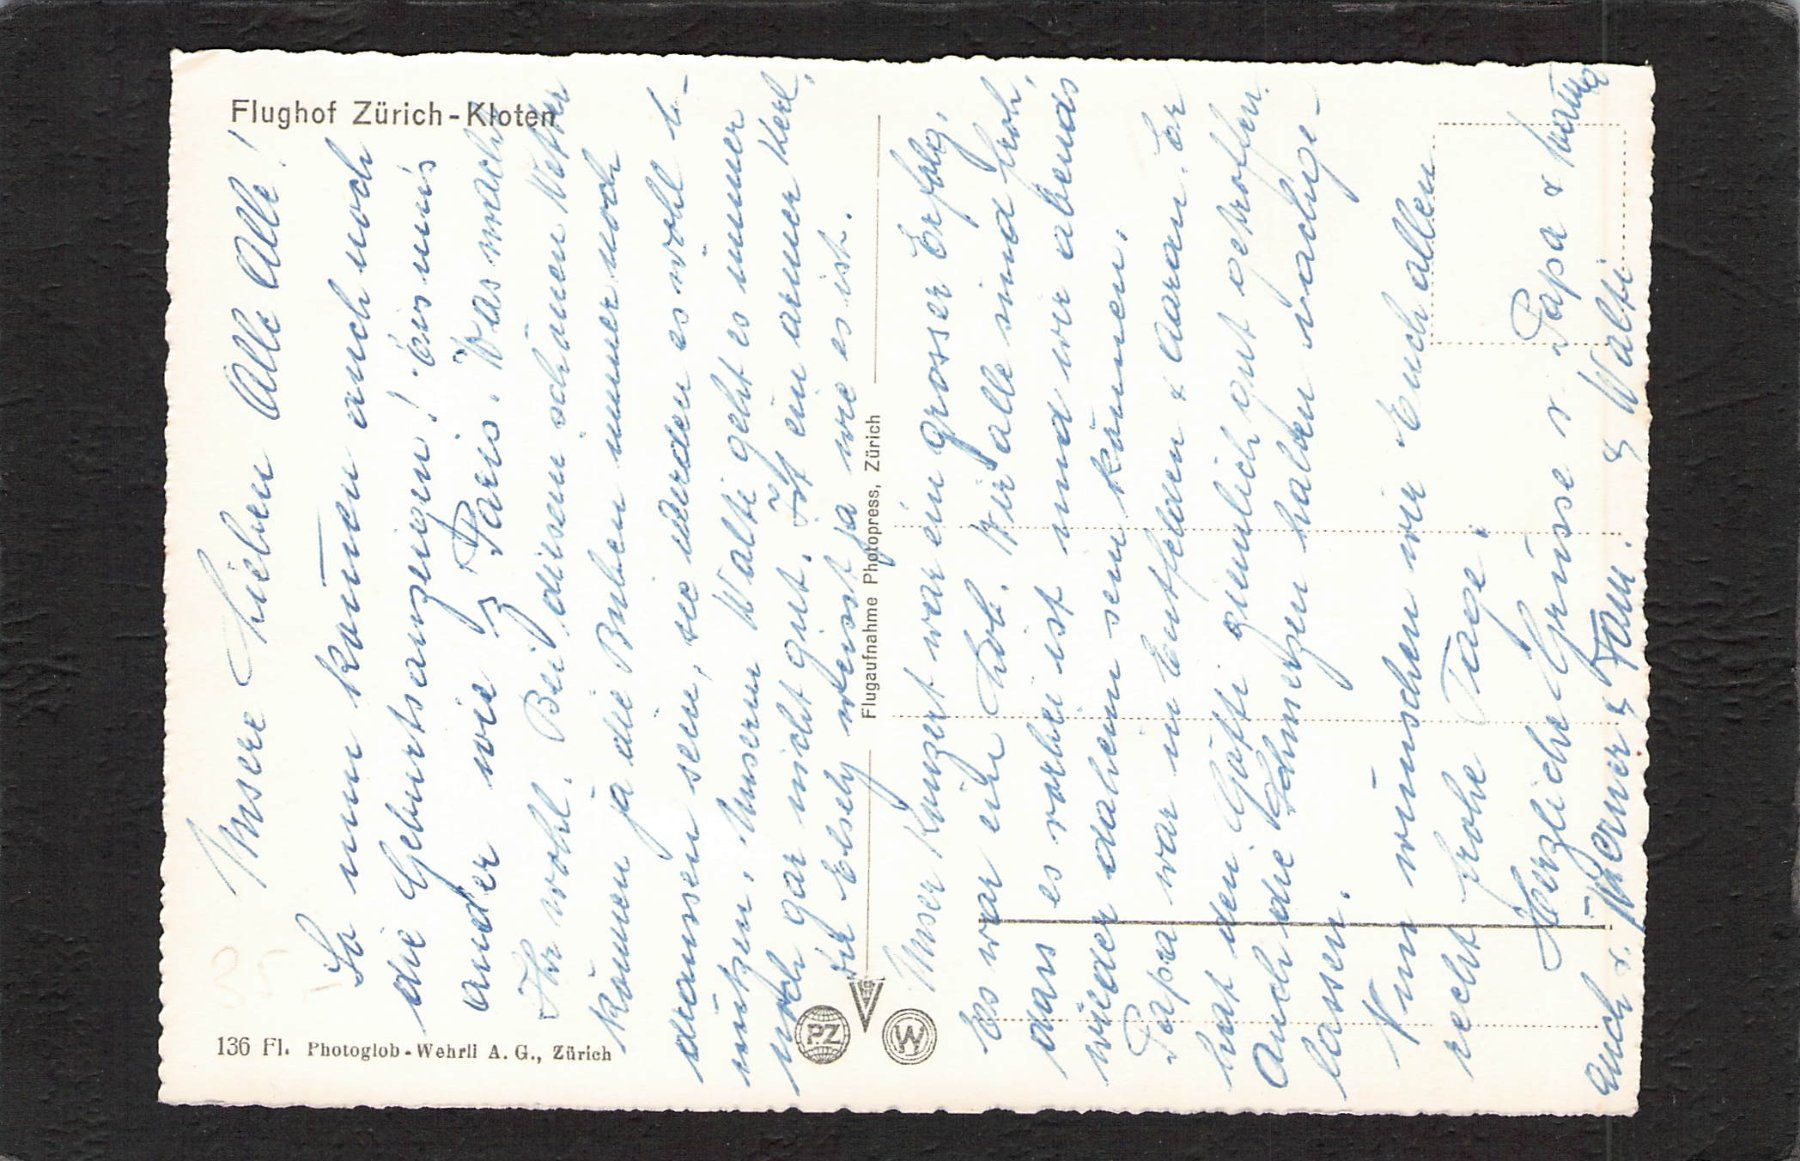 Flughof Zürich-Kloten
Unsere Lieben Alle Alle!
So nun kommen auch noch
die Geburtsanzeigen! Eis uns
ander wie z Paris. Was macht
Ihr wohl. Bei diesem schönen Wetter
können ja die Buben immer noch
draussen sein, sie werden es wohl b-
nützen. Unserm Walti geht es immer
noch gar nicht gut. Ist ein armer Kerl,
die Elsely weisst ja wie es ist.
Flugaufnahme Photopress, Zürich
136 Fl. Photoglob-Wehrli A.G., Zürich
PZ
W
Unser Konzert war ein grosser Erfolg,
Es war ein Lob. Wir alle sind froh,
dass es vorbei ist und wir abends
wieder daheim sein können.
Papa war in Entfelden & Aarau. Er
hat den Götti ziemlich gut getroffen.
Auch die Schmerzen haben nachge-
lassen.
Nun wünschen wir Euch allen
recht frohe Tage.
Herzliche Grüsse v. Papa & Mama
auch v. Werner & Fam. & Walti